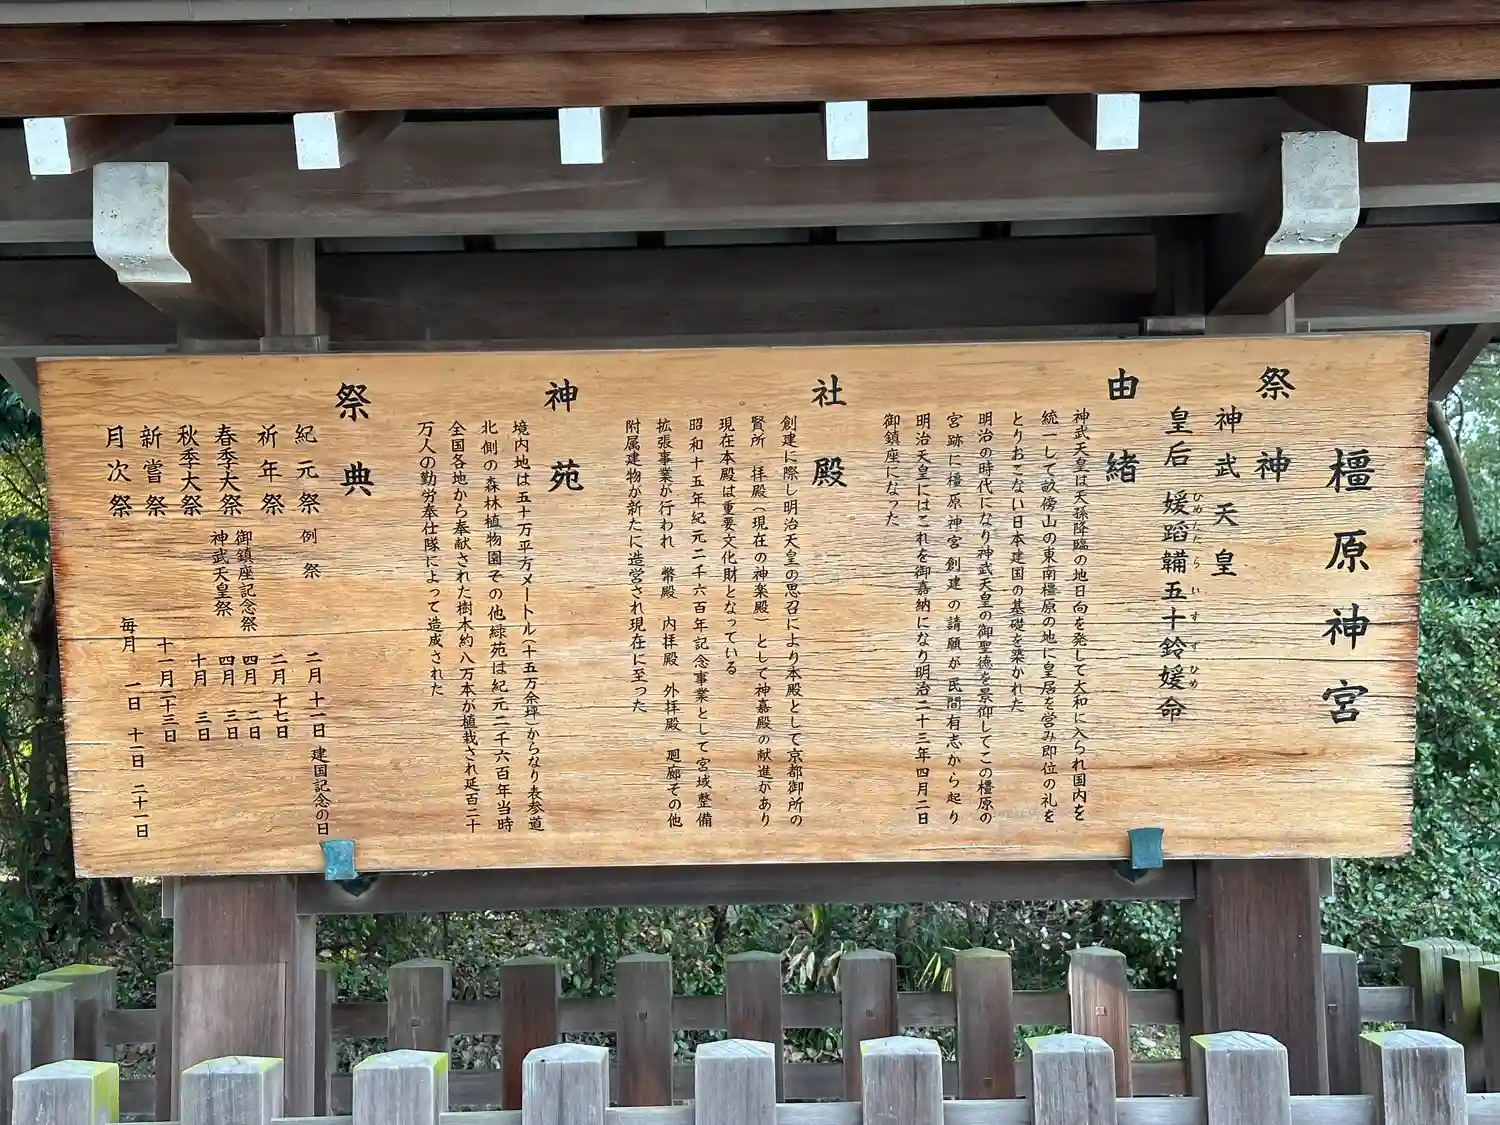 橿原神宮
祭神
神武天皇
皇后 媛蹈鞴五十鈴媛命
ひめたたら いすず ひめ
由緒
神武天皇は天孫降臨の地日向を発して大和に入られ国内を
統一して畝傍山の東南橿原の地に皇居を営み即位の礼を
とりおこない日本建国の基礎を築かれた
明治の時代になり神武天皇の御聖徳を景仰してこの橿原の
宮跡に橿原神宮創建の請願が民間有志から起り
明治天皇にはこれを御嘉納になり明治二十三年四月二日
御鎮座になった
社殿
創建に際し明治天皇の思召により本殿として京都御所の
賢所 拝殿(現在の神楽殿)として神嘉殿の献進があり
現在本殿は重要文化財となっている
昭和十五年紀元二千六百年記念事業として宮域整備
拡張事業が行われ 幣殿 内拝殿 外拝殿 廻廊その他
附属建物が新たに造営され現在に至った
神苑
境内地は五十万平方メートル(十五万余坪)からなり表参道
北側の森林植物園その他緑苑は紀元二千六百年当時
全国各地から奉献された樹木約八万本が植栽され延百二十
万人の勤労奉仕隊によって造成された
祭典
紀元祭 例祭 二月十一日 建国記念の日
祈年祭 二月十七日
春季大祭 御鎮座記念祭 四月二日
神武天皇祭 四月三日
秋季大祭 十月三日
新嘗祭 十一月二十三日
月次祭 毎月 一日 十一日 二十一日